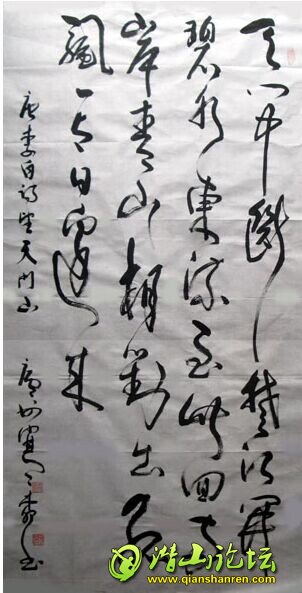 天门中斷楚江開
碧水東流至此回两
岸青山相對出孤
帆一片日邊來
唐李白诗望天门山
书
潜山论坛
www.qianshanren.com